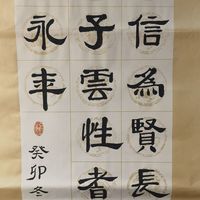 信為賢長
子雲性
永年
癸卯冬